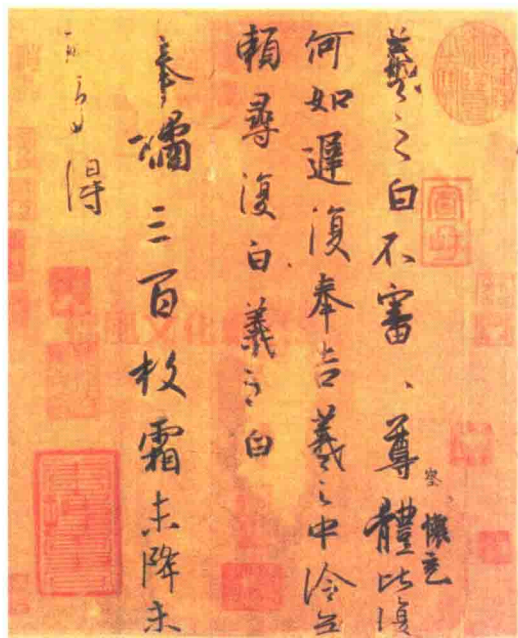 羲之白不審、尊體比復
察、懷充
何如遲復奉告羲之中冷無
賴尋復白羲之白
奉橘三百枚霜未降未
可多得